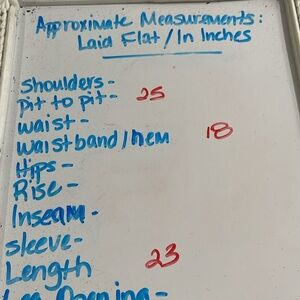 Approximate Measurements:
Laid Flat / In Inches
Shoulders -
Pit to pit - 25
waist -
waistband/hem 18
Hips -
Rise -
Inseam -
sleeve -
Length 23
Leg Opening -